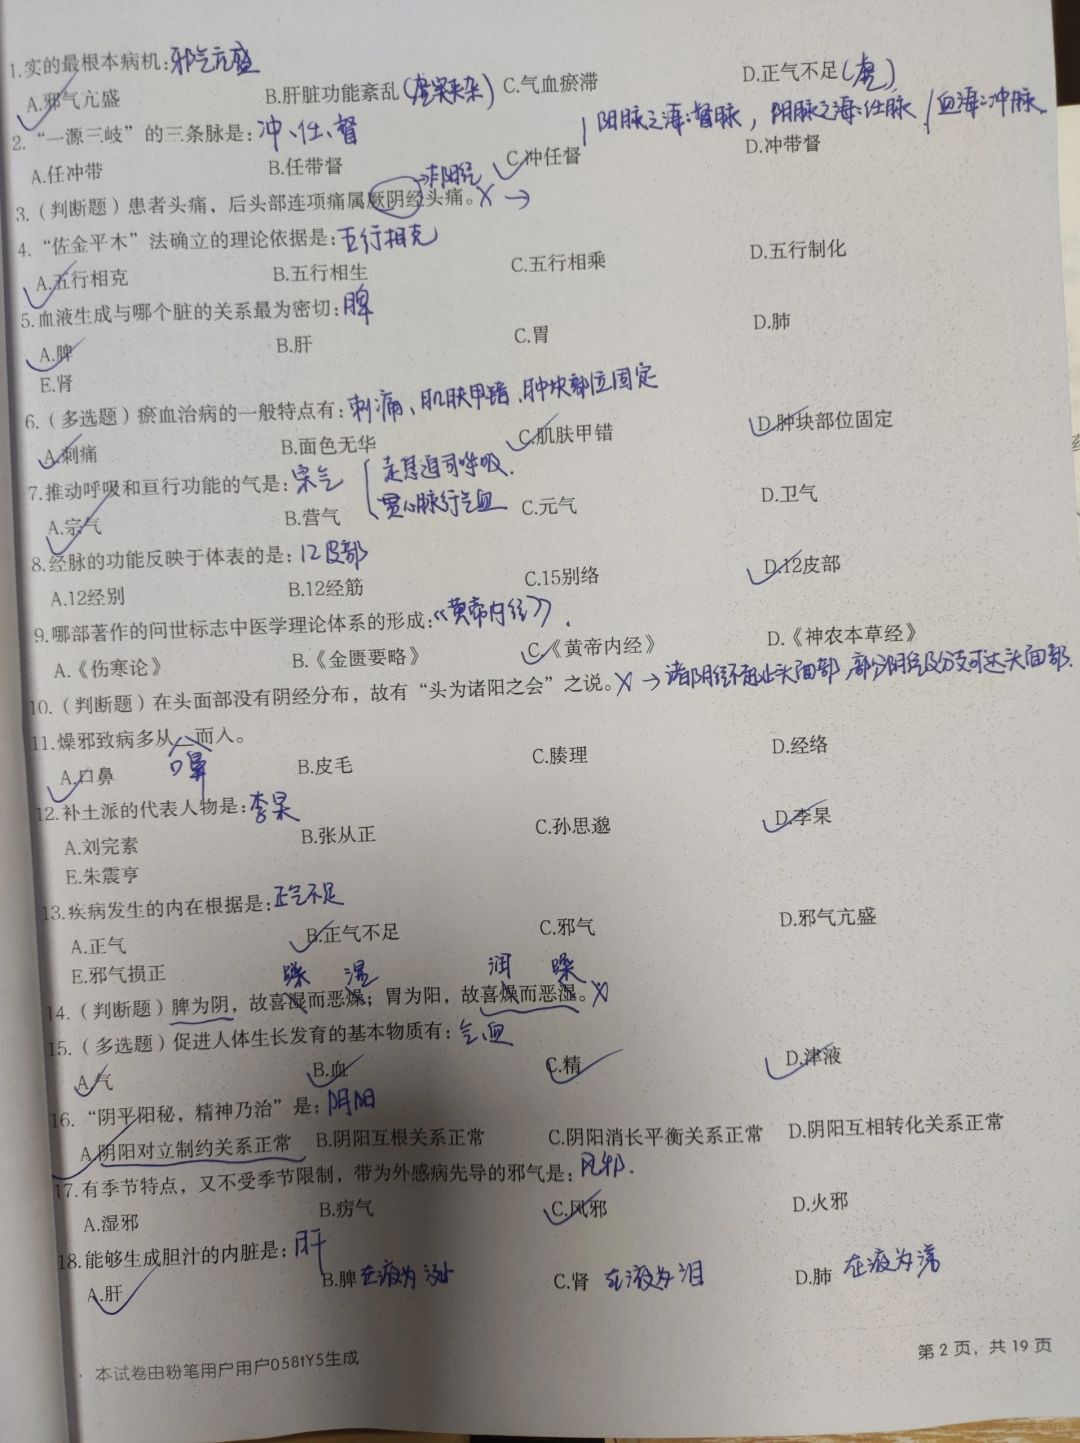 1.实的最根本病机:邪气亢盛
A.邪气亢盛 B.肝脏功能紊乱(虚实夹杂) C.气血瘀滞 D.正气不足(虚)
2.“一源三岐”的三条脉是:冲、任、督 阳脉之海:督脉，阴脉之海:任脉 血海:冲脉
A.任冲带 B.任带督 C.冲任督 D.冲带督
3.(判断题)患者头痛，后头部连项痛属厥阴经头痛。X →
4.“佐金平木”法确立的理论依据是:五行相克
A.五行相克 B.五行相生 C.五行相乘 D.五行制化
5.血液生成与哪个脏的关系最为密切:脾
A.脾 B.肝 C.胃 D.肺
E.肾
6.(多选题)瘀血治病的一般特点有:刺痛、肌肤甲错、肿块部位固定
A.刺痛 B.面色无华 C.肌肤甲错 D.肿块部位固定
7.推动呼吸和亘行功能的气是:宗气 走息道司呼吸.
贯心脉行气血
A.宗气 B.营气 C.元气 D.卫气
8.经脉的功能反映于体表的是:12皮部
A.12经别 B.12经筋 C.15别络 D.12皮部
9.哪部著作的问世标志中医学理论体系的形成:《黄帝内经》.
A.《伤寒论》 B.《金匮要略》 C.《黄帝内经》 D.《神农本草经》
10.(判断题)在头面部没有阴经分布，故有“头为诸阳之会”之说。X →诸阴经不起止头面部,部分阴经及分支可达头面部.
11.燥邪致病多从__而人。
口鼻
A.口鼻 B.皮毛 C.腠理 D.经络
12.补土派的代表人物是:李杲
A.刘完素 B.张从正 C.孙思邈 D.李杲
E.朱震亨
13.疾病发生的内在根据是:正气不足
A.正气 B.正气不足 C.邪气 D.邪气亢盛
E.邪气损正
燥 湿 润 燥
14.(判断题)脾为阴，故喜湿而恶燥；胃为阳，故喜燥而恶湿。X
15.(多选题)促进人体生长发育的基本物质有:气、血
A.气 B.血 C.精 D.津液
16.“阴平阳秘，精神乃治”是:阴阳
A.阴阳对立制约关系正常 B.阴阳互根关系正常 C.阴阳消长平衡关系正常 D.阴阳互相转化关系正常
17.有季节特点，又不受季节限制，带为外感病先导的邪气是:风邪.
A.湿邪 B.疠气 C.风邪 D.火邪
18.能够生成胆汁的内脏是:肝
A.肝 B.脾 在液为 C.肾 在液为泪 D.肺 在液为
本试卷由粉笔用户用户058tY5生成
第 2 页，共 19 页